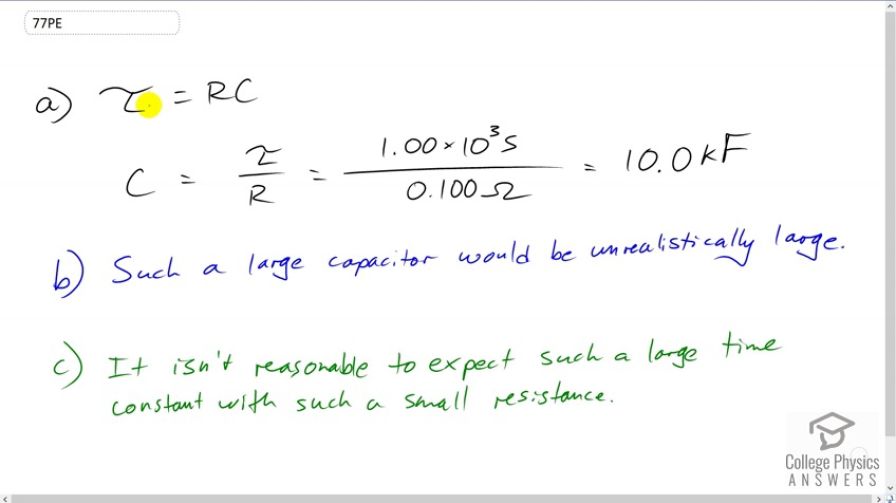 77PE
a) τ = RC
C = τ/R = 1.00 × 10³ s / 0.100 Ω = 10.0 kF
b) Such a large capacitor would be unrealistically large.
c) It isn't reasonable to expect such a large time
constant with such a small resistance.
College Physics
ANSWERS